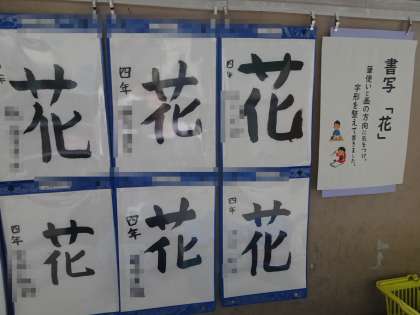 花
四年
花
四年
花
四年
書写「花」
筆使いと画の方向に気をつけ、
字形を整えて書きました。
花
四年
花
四年
花
四年